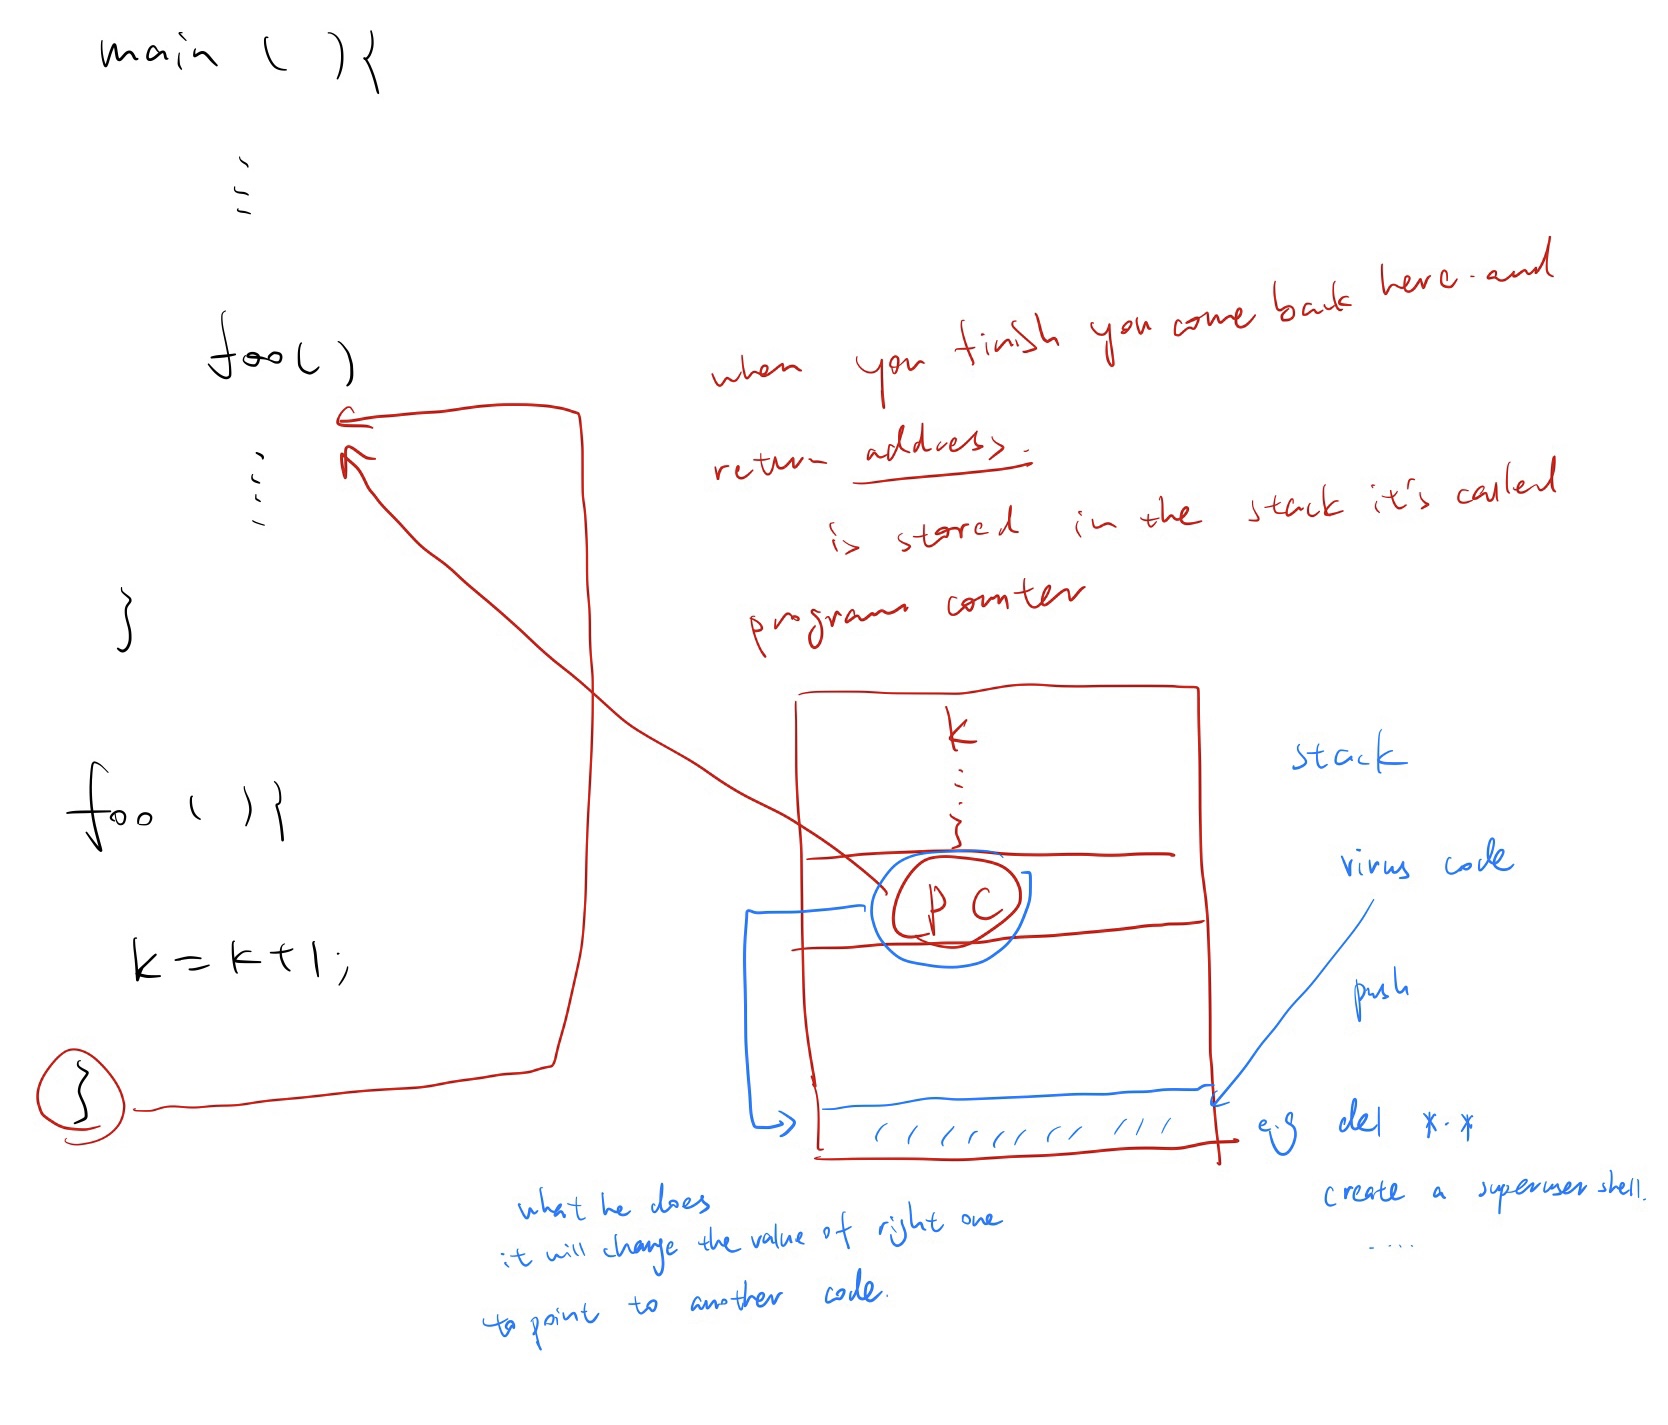 main ( ){
foo()
}
foo ( ){
k = k+1;
}
when you finish you come back here and
return address.
is stored in the stack it's called
program counter
k
}
PC
stack
virus code
push
e.g del *.*
create a superuser shell.
....
what he does
it will change the value of right one
to point to another code.